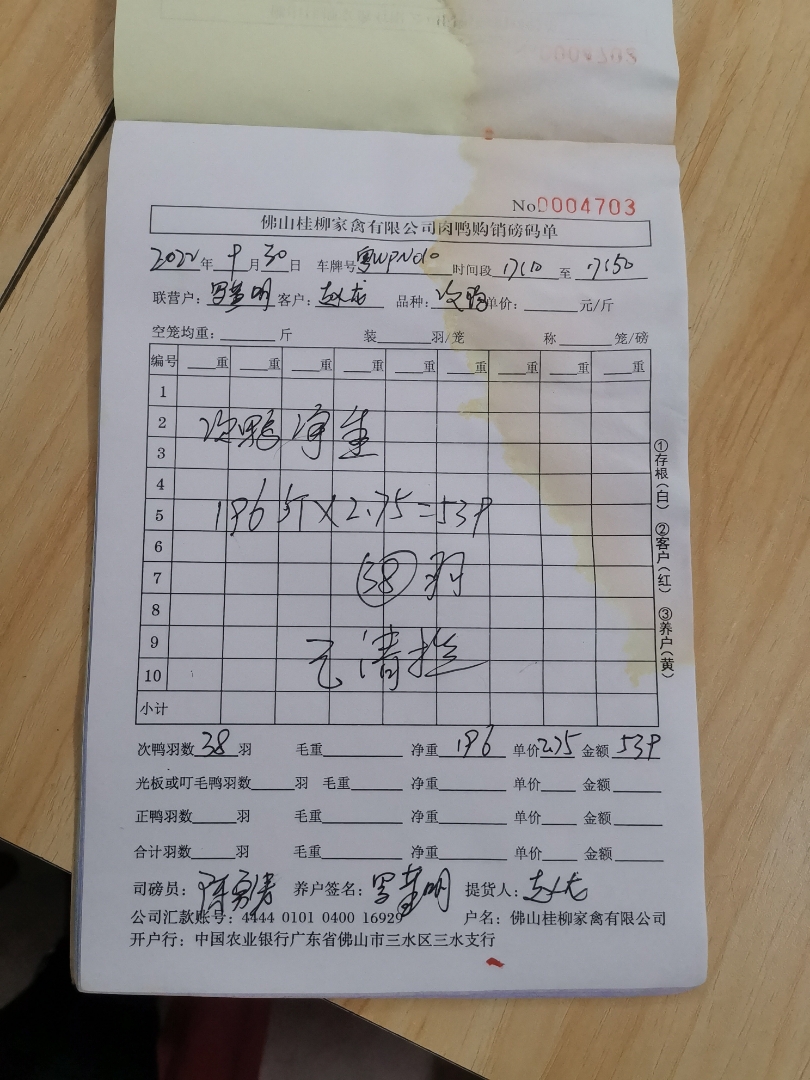 No 0004703
佛山桂柳家禽有限公司肉鸭购销磅码单
2022年9月30日 车牌号 粤WPN010 时间段 17:10 至 17:50
联营户: 客户: 赵龙 品种: 次鸭 单价: 元/斤
空笼均重: 斤 装 羽/笼 称 笼/磅
编号 重 重 重 重 重 重 重 重 重
1
2
次鸭净重
3
4
5
196斤×2.75=539
6
7
38羽
8
9
已清栏
10
小计
次鸭羽数 38 羽 毛重 净重 196 单价 2.75 金额 539
光板或叮毛鸭羽数 羽 毛重 净重 单价 金额
正鸭羽数 羽 毛重 净重 单价 金额
合计羽数 羽 毛重 净重 单价 金额
司磅员: 养户签名: 提货人:
公司汇款账号: 4444 0101 0400 16929 户名: 佛山桂柳家禽有限公司
开户行: 中国农业银行广东省佛山市三水区三水支行
①存根(白) ②客户(红) ③养户(黄)